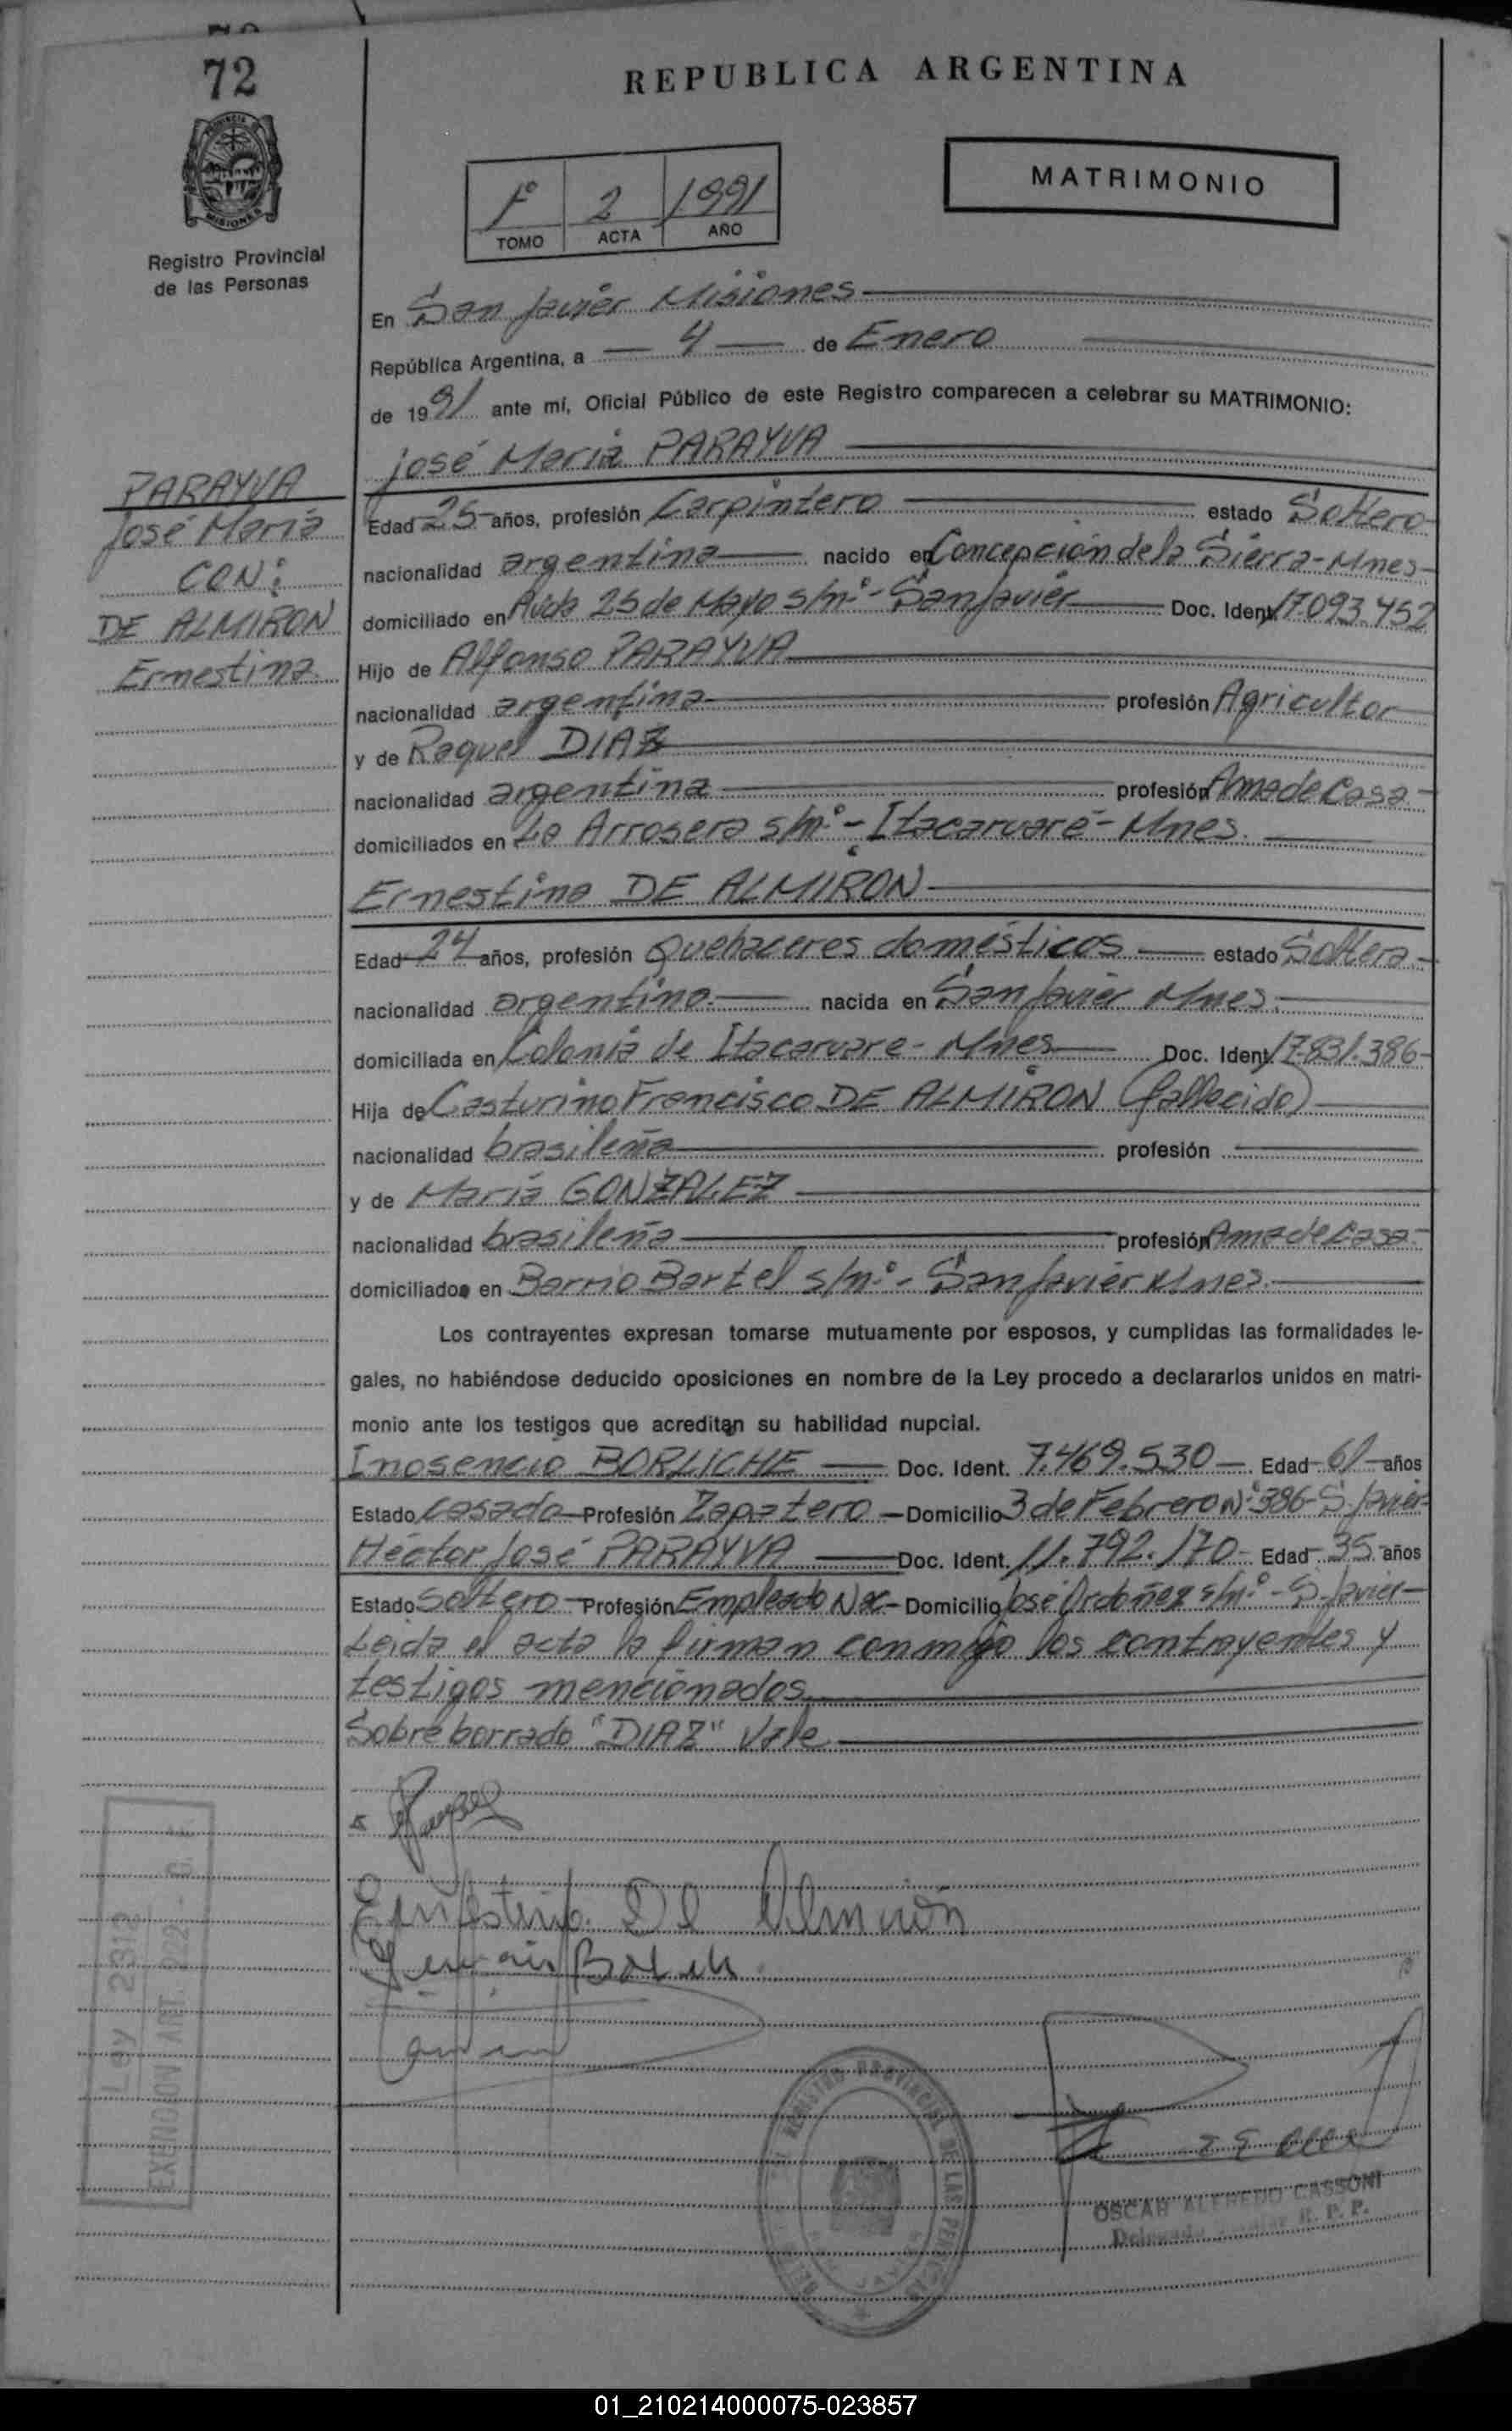 72
REPUBLICA ARGENTINA
MATRIMONIO
1º 2 1991
TOMO ACTA AÑO
PROVINCIA DE
MISIONES
Registro Provincial
de las Personas
En San Javier Misiones
República Argentina, a 4 de Enero
de 1991 ante mí, Oficial Público de este Registro comparecen a celebrar su MATRIMONIO:
José María PARAYVA
PARAYVA
José María
CON:
DE ALMIRON
Ernestina
Edad 25 años, profesión Carpintero estado Soltero
nacionalidad argentina nacido en Concepción de la Sierra-Mnes-
domiciliado en Avda 25 de Mayo s/nº- San Javier Doc. Ident. 17.093.452
Hijo de Alfonso PARAYVA
nacionalidad argentina profesión Agricultor
y de Raquel DIAZ
nacionalidad argentina profesión Ama de Casa-
domiciliados en La Arrosera s/nº- Itacaruaré- Mnes.
Ernestina DE ALMIRON
Edad 24 años, profesión Quehaceres domésticos estado Soltera-
nacionalidad argentina nacida en San Javier Mnes.
domiciliada en Colonia de Itacaruare- Mnes Doc. Ident. 17.831.386-
Hija de Casturino Francisco DE ALMIRON (fallecido)
nacionalidad brasileña profesión
y de María GONZALEZ
nacionalidad brasileña profesión Ama de Casa-
domiciliados en Barrio Bartel s/nº- San Javier Mnes.
Los contrayentes expresan tomarse mutuamente por esposos, y cumplidas las formalidades le-
gales, no habiéndose deducido oposiciones en nombre de la Ley procedo a declararlos unidos en matri-
monio ante los testigos que acreditan su habilidad nupcial.
Inosencio BORLICHE Doc. Ident. 7.469.530 Edad 61 años
Estado Casado Profesión Zapatero Domicilio 3 de Febrero Nº 386-S. Javier-
Héctor José PARAYVA Doc. Ident. 11.792.170- Edad 35 años
Estado Soltero Profesión Empleado Nac- Domicilio José Ordoñez s/nº- S. Javier-
Leida el acta la firman conmigo los contrayentes y
testigos mencionados
Sobre borrado "DIAZ" Vale
Ernestina De Almirón
Ley 2312
EXENCION ART. 222
REGISTRO PROVINCIAL DE LAS PERSONAS
OSCAR ALFREDO CASSONI
Delegado R. P. P.
01_210214000075-023857